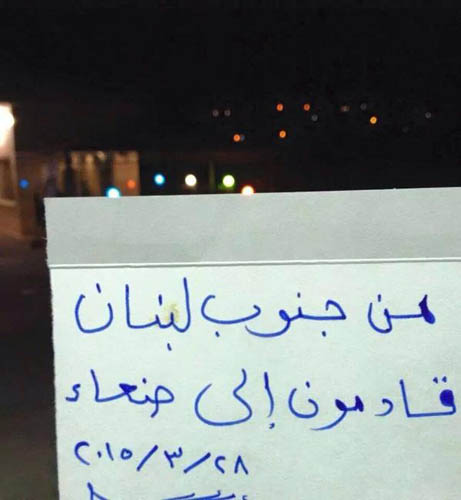 من جنوب لبنان
قادمون إلى صنعاء
٢٠١٥/٣/٢٨